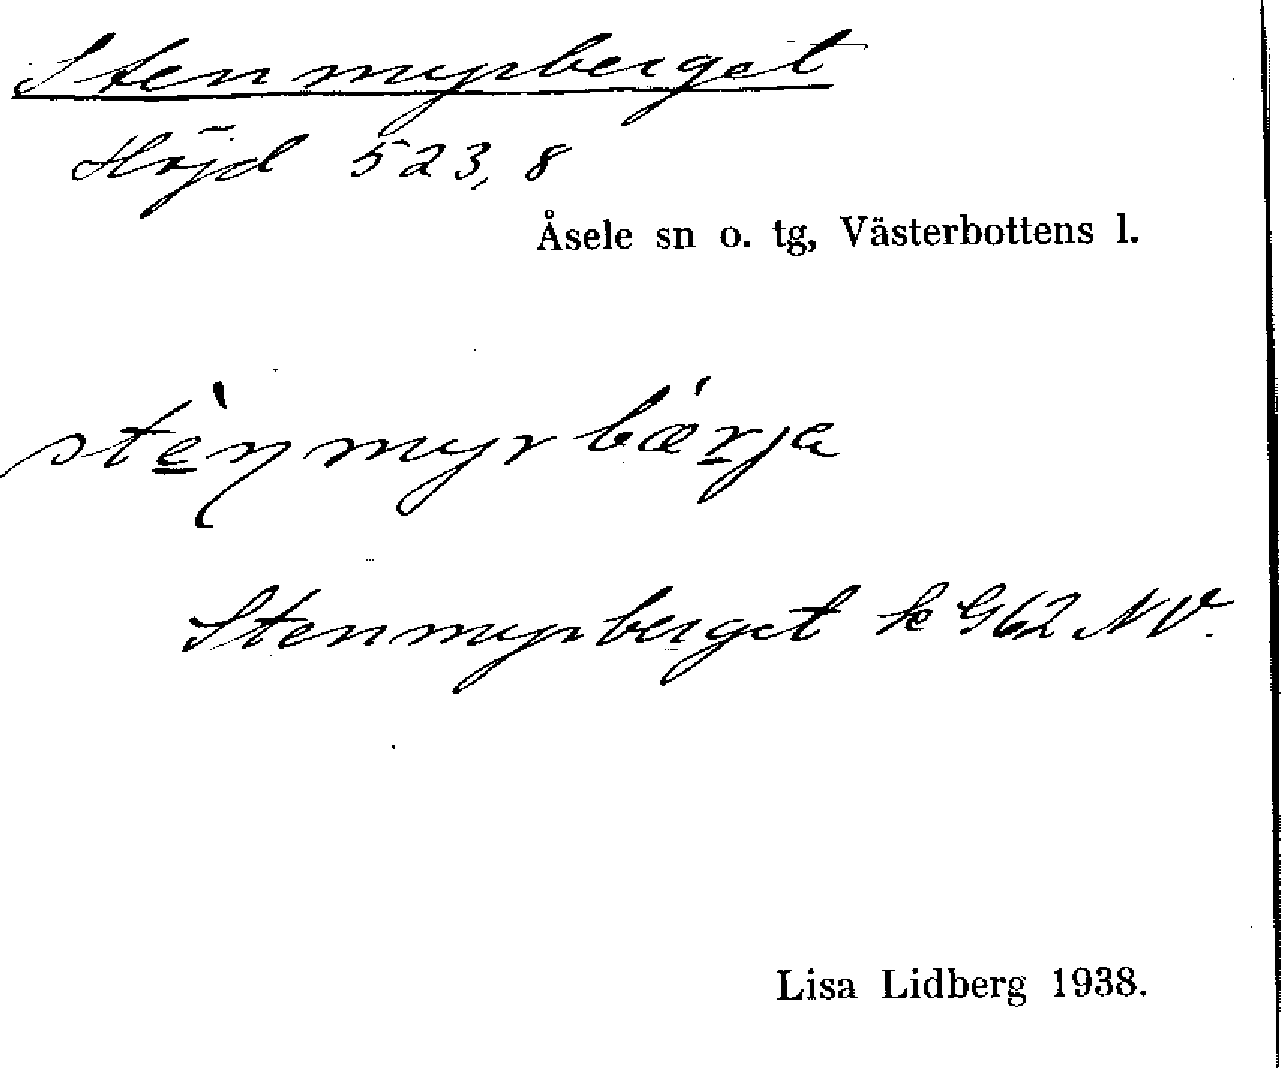 Stenmyrberget
Höjd 523,8
Åsele sn o. tg, Västerbottens l.
stè̱nmyrbǽṟja
Stenmyrberget k G62 NV.
Lisa Lidberg 1938.